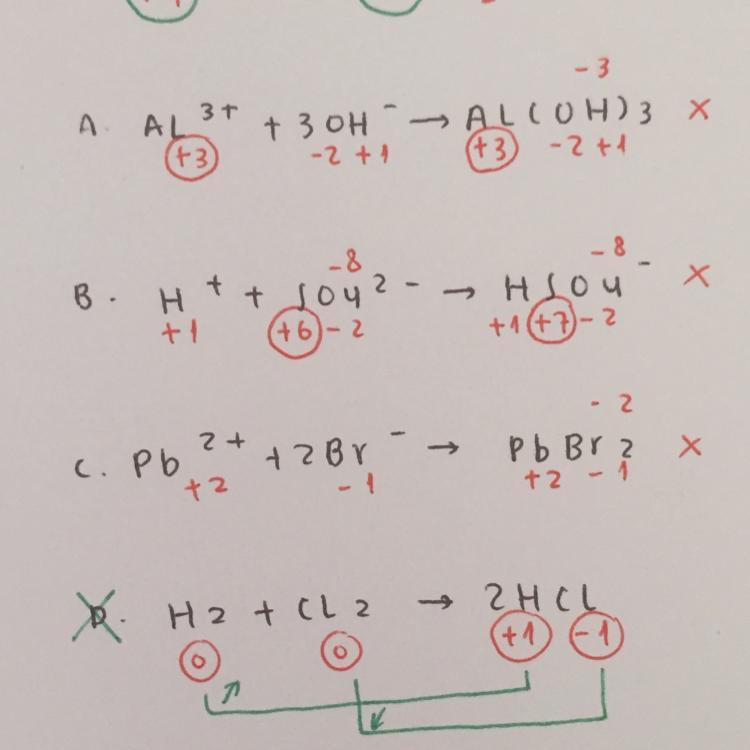 -3
A. AL 3+ + 3OH - → AL(OH)3 ×
+3 -2 +1 +3 -2 +1
-8 -8
B. H + + SO4 2- → HSO4 - ×
+1 +6 -2 +1 +7 -2
-2
C. Pb 2+ + 2Br - → PbBr2 ×
+2 -1 +2 -1
D. H2 + CL2 → 2HCL
0 0 +1 -1